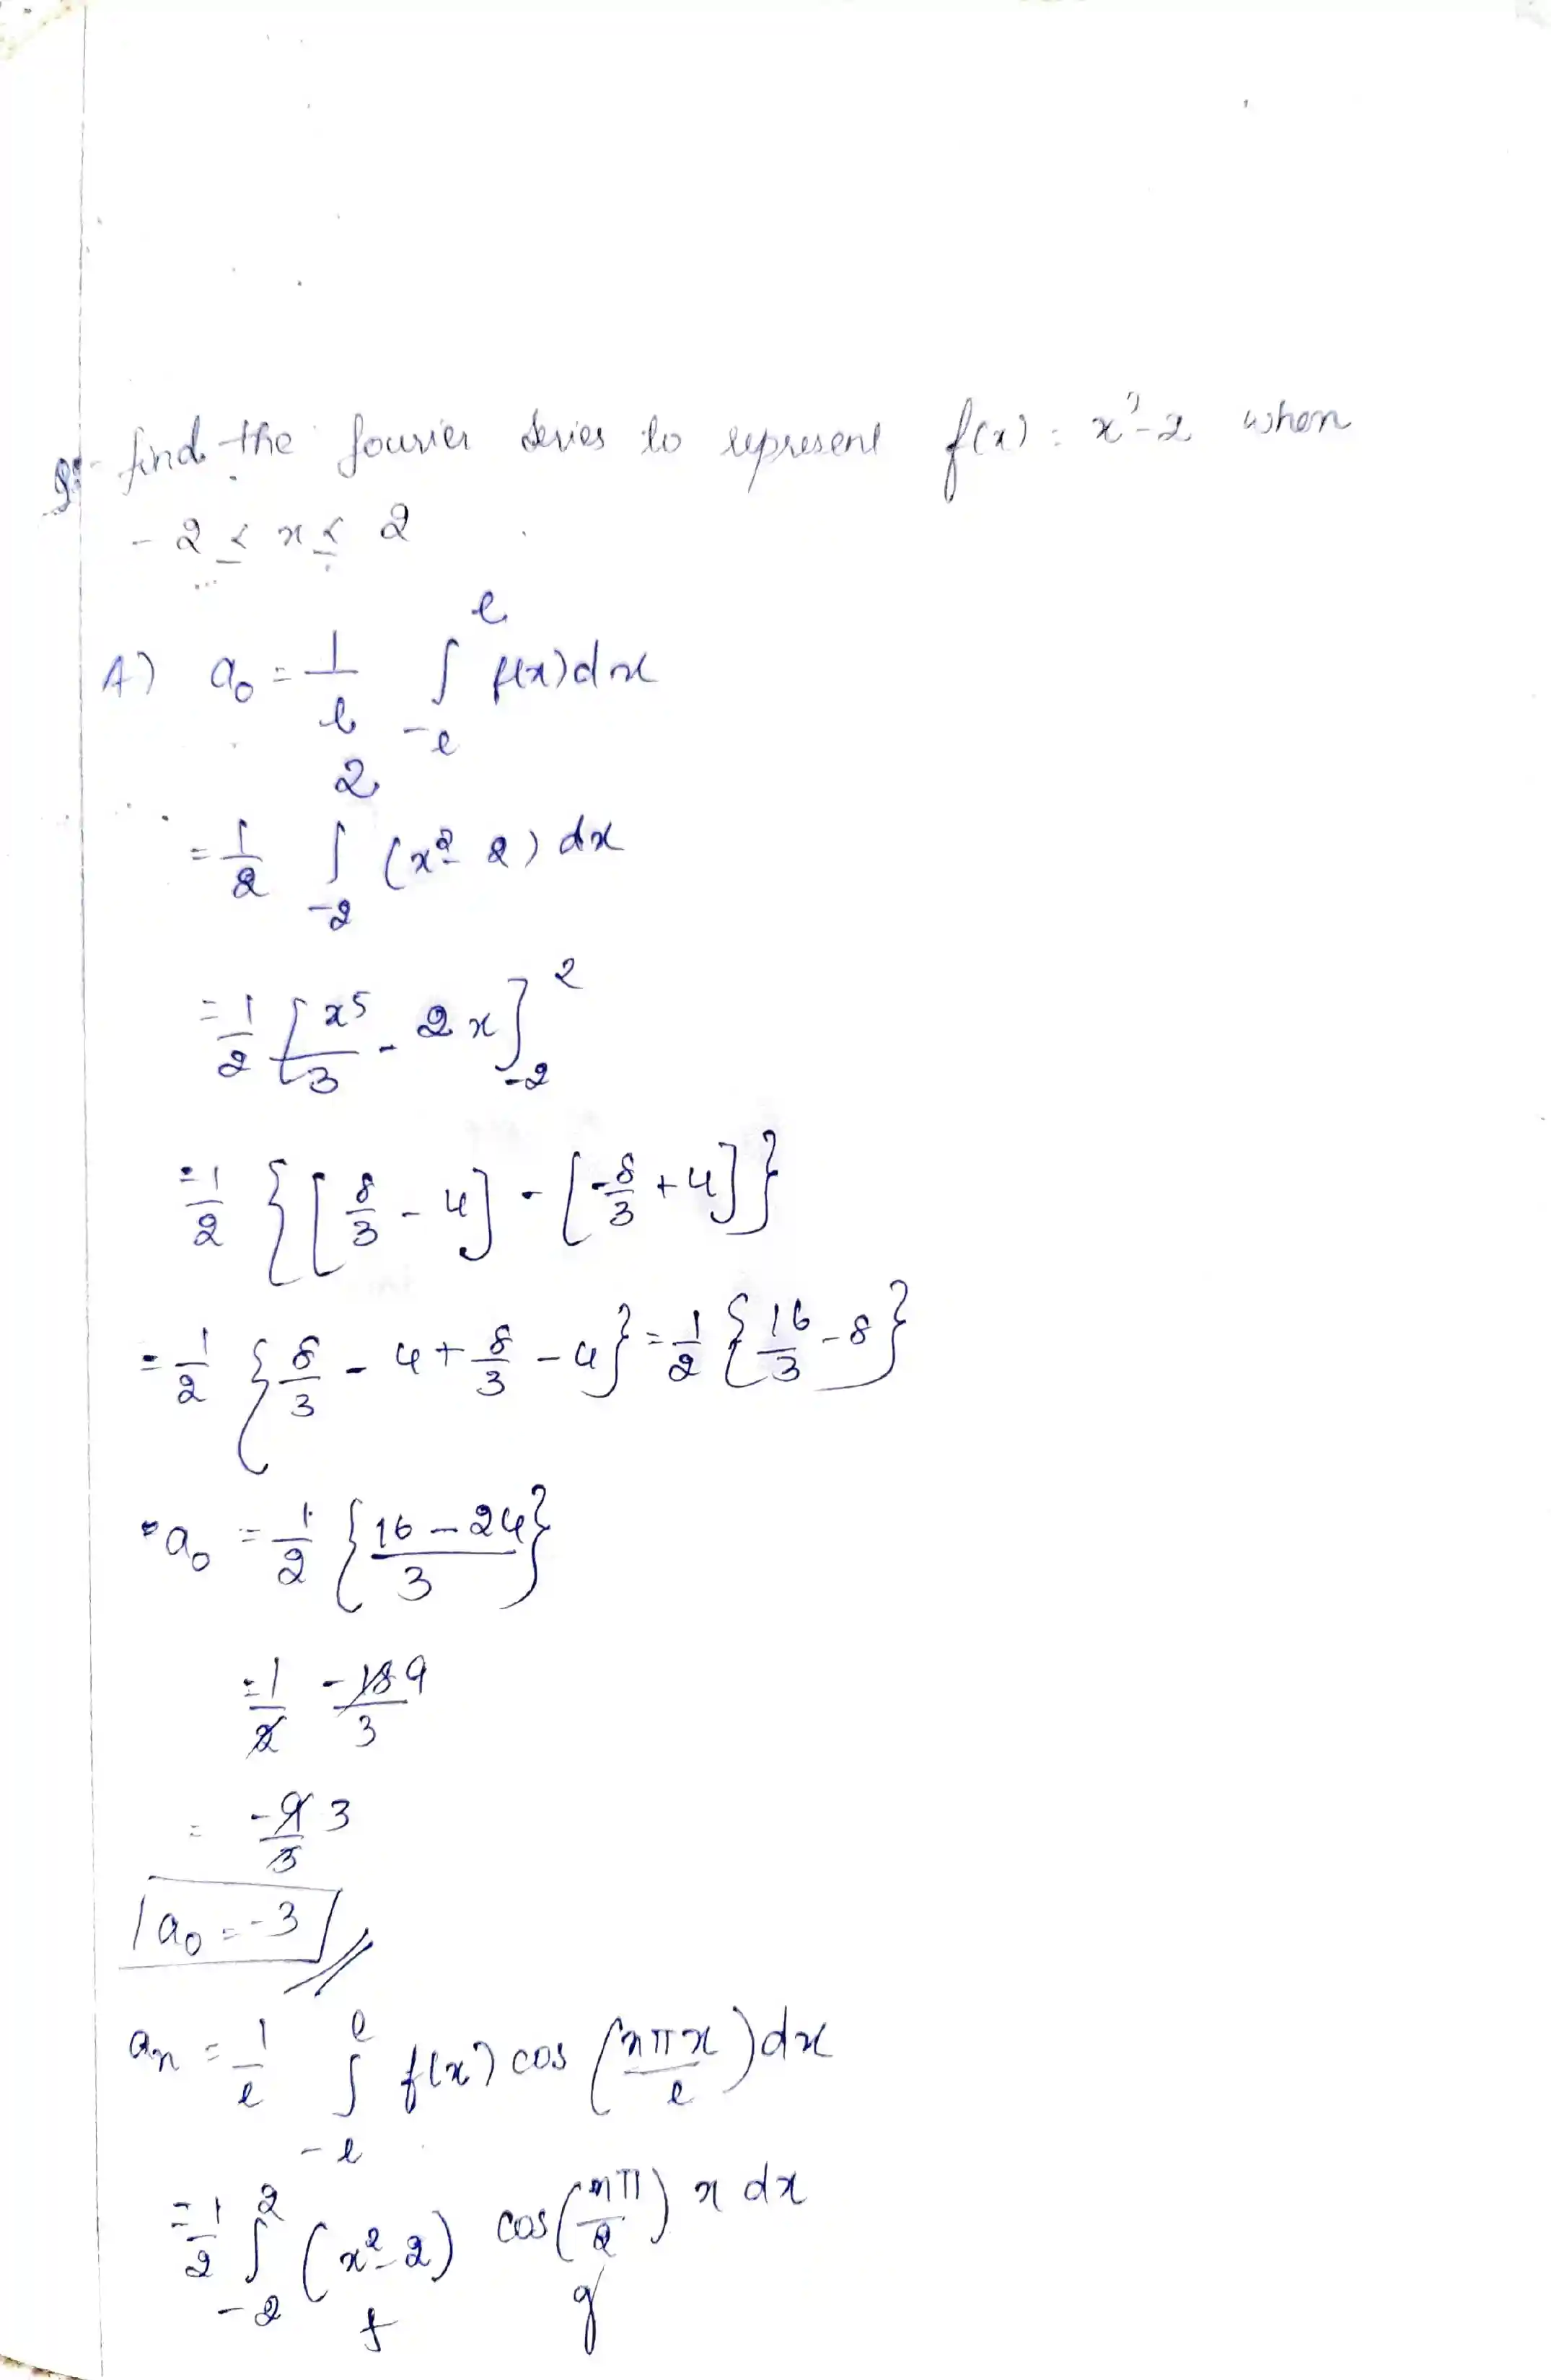 Q:- find the fourier series to represent f(x) = x²-2 when
-2 ≤ x ≤ 2
A) a₀ = 1/l ∫_{-l}^{l} f(x) dx
= 1/2 ∫_{-2}^{2} (x² - 2) dx
= 1/2 [x⁵/3 - 2x]_{-2}^{2}
= 1/2 {[8/3 - 4] - [-8/3 + 4]}
= 1/2 {8/3 - 4 + 8/3 - 4} = 1/2 {16/3 - 8}
a₀ = 1/2 {16 - 24/3}
= 1/2 -18 9/3
= -9 3/3
a₀ = -3
aₙ = 1/l ∫_{-l}^{l} f(x) cos (nπx/l) dx
= 1/2 ∫_{-2}^{2} (x² - 2) cos (nπ/2) x dx
f g